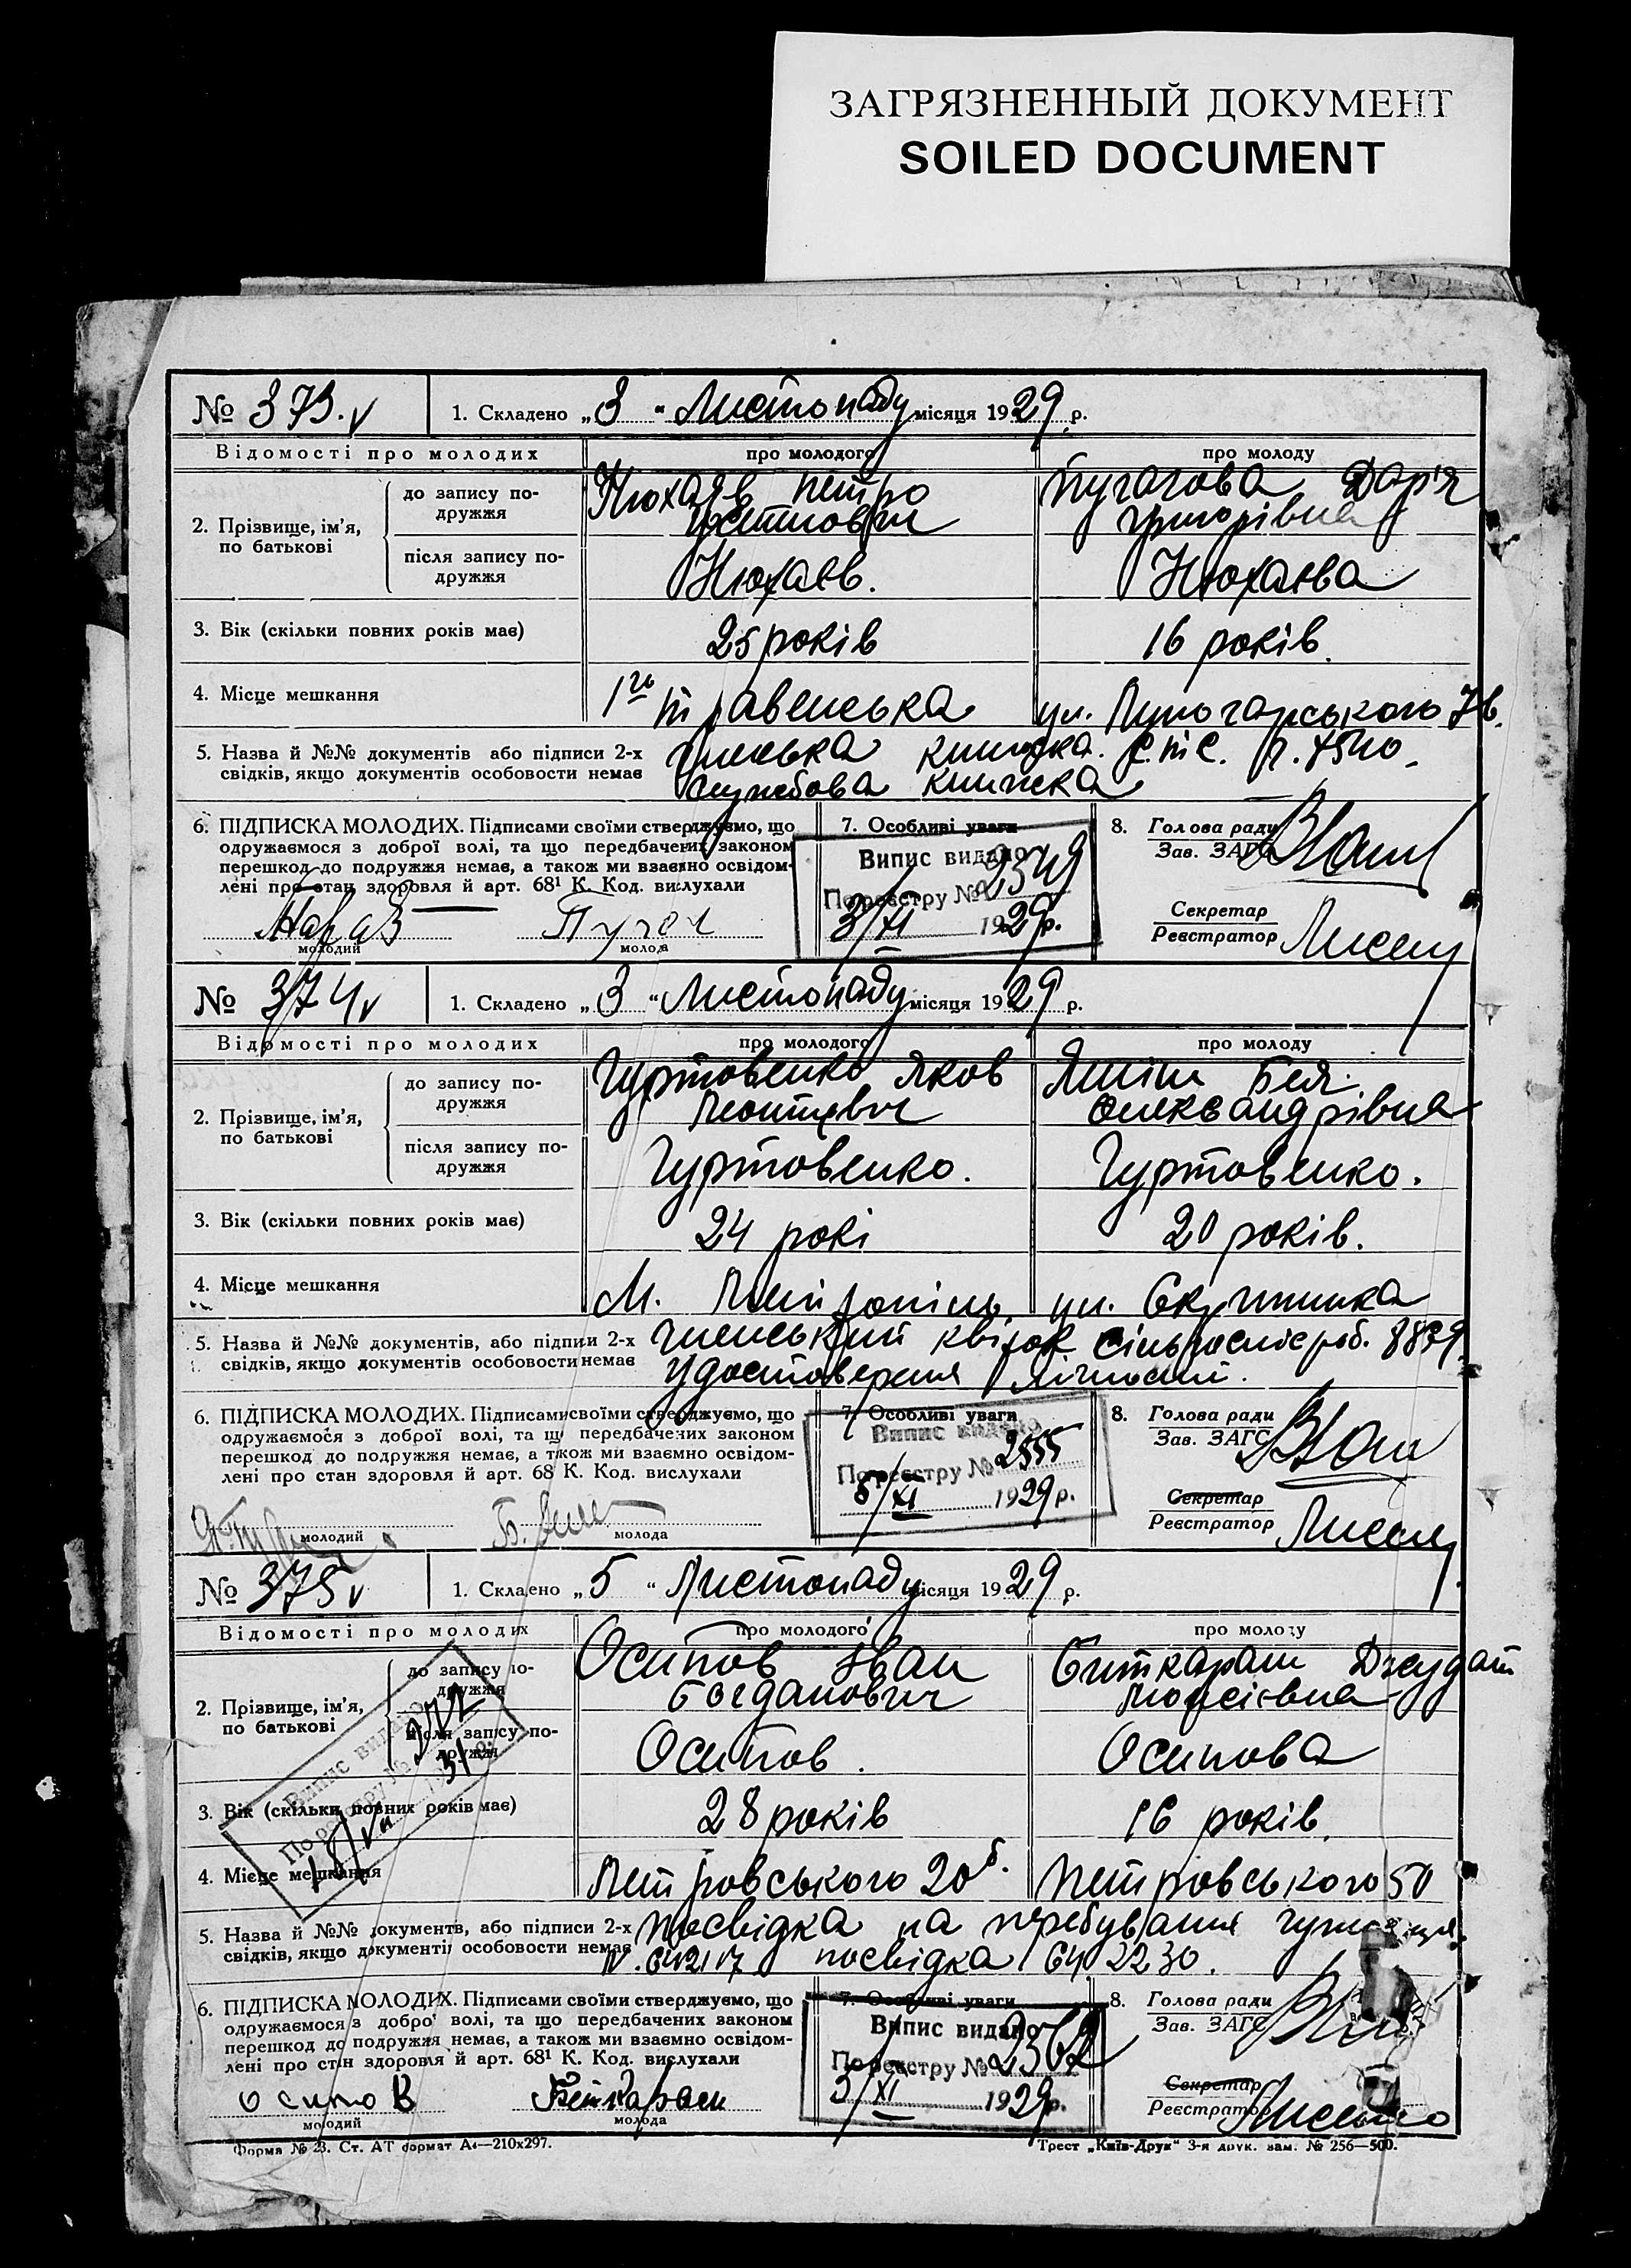 ЗАГРЯЗНЕННЫЙ ДОКУМЕНТ
SOILED DOCUMENT
№ 373. v
1. Складено „3“ Листопаду місяця 1929 р.
Відомості про молодих
про молодого
про молоду
2. Прізвище, ім’я, по батькові
до запису подружжя
Нюхаєв Петро
Пугачова Дар'я
Григорівна
після запису подружжя
Нюхаєв.
Нюхаєва
3. Вік (скільки повних років має)
25 років
16 років.
4. Місце мешкання
1го травенська
ул. Луначарського 7в.
5. Назва й №№ документів або підписи 2-х
свідків, якщо документів особовости немає
Членська книжка.
Службова книжка
6. ПІДПИСКА МОЛОДИХ. Підписами своїми стверджуємо, що
одружаємося з доброї волі, та що передбачених законом
перешкод до подружжя немає, а також ми взаємно освідом-
лені про стан здоровля й арт. 68¹ К. Код. вислухали
молодий
молода
7. Особливі уваги
Випис видано
По реєстру № 2349
3/XI 1929 р.
8. Голова ради
Зав. ЗАГС
Секретар
Реєстратор
№ 374 v
1. Складено „3“ Листопаду місяця 1929 р.
Відомості про молодих
про молодого
про молоду
2. Прізвище, ім’я, по батькові
до запису подружжя
Гуртовенко Яков
Леонтієвич
Бея
Олександрівна
після запису подружжя
Гуртовенко.
Гуртовенко.
3. Вік (скільки повних років має)
24 рокі
20 років.
4. Місце мешкання
М.
ул.
5. Назва й №№ документів, або підпии 2-х
свідків, якщо документів особовости немає
Членський квіток 8839.
Удостоверения
6. ПІДПИСКА МОЛОДИХ. Підписами своїми стверджуємо, що
одружаємося з доброї волі, та що передбачених законом
перешкод до подружжя немає, а також ми взаємно освідом-
лені про стан здоровля й арт. 68 К. Код. вислухали
молодий
молода
7. Особливі уваги
Випис видано
По реєстру № 2355
5/XI 1929 р.
8. Голова ради
Зав. ЗАГС
Секретар
Реєстратор
№ 375 v
1. Складено „5“ Листопаду місяця 1929 р.
Відомості про молодих
про молодого
про молоду
2. Прізвище, ім’я, по батькові
до запису подружжя
Осипов Іван
Богданович
Биткараш Джудат
Мойсієвна
після запису подружжя
Осипов.
Осипова
Випис видано
По реєстру №
31
3. Вік (скільки повних років має)
28 років
16 років.
4. Місце мешкання
Петровського 20б.
Петровського 50
5. Назва й №№ документв, або підписи 2-х
свідків, якщо документі особовости немає
Посвідка на перебування
N. 642117 посвідка 642230.
6. ПІДПИСКА МОЛОДИХ. Підписами своїми стверджуємо, що
одружаємося з доброї волі, та що передбачених законом
перешкод до подружжя немає, а також ми взаємно освідом-
лені про стан здоровля й арт. 68¹ К. Код. вислухали
осипов
молодий
молода
7. Особливі уваги
Випис видано
По реєстру №
1929 р.
8. Голова ради
Зав. ЗАГС
Секретар
Реєстратор
Форма № 23. Ст. АТ формат А4—210х297.
Трест „Київ-Друк“ 3-я друк. зам. № 256—500.